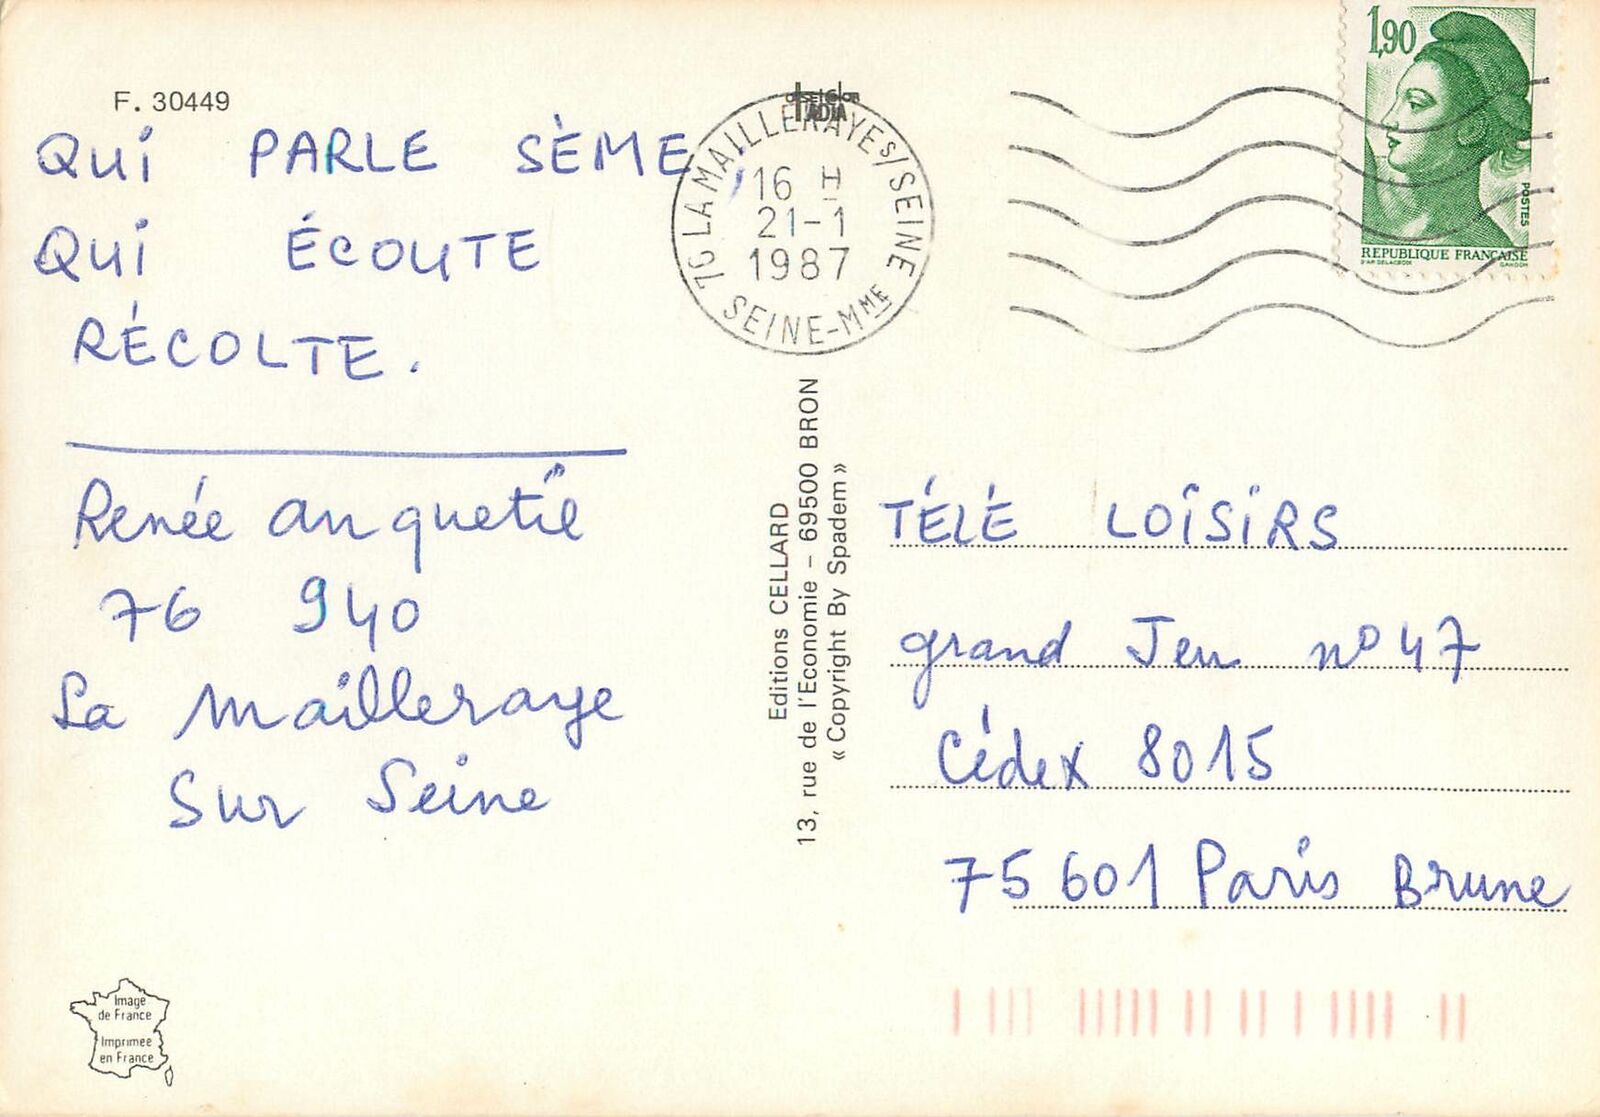 F. 30449
QUI PARLE SÈME,
QUI ÉCOUTE
RÉCOLTE.
Renée Anquetil
76 940
La Mailleraye
Sur Seine
Image
de France
Imprimée
en France
76 LA MAILLERAYE S/SEINE
16 H
21-1
1987
SEINE-MME
Editions CELLARD
13, rue de l'Economie – 69500 BRON
« Copyright By Spadem »
1,90
POSTES
REPUBLIQUE FRANÇAISE
D'AP. DELACROIX GANDON
TÉLÉ LOISIRS
grand Jeu n° 47
Cédex 8015
75 601 Paris Brune